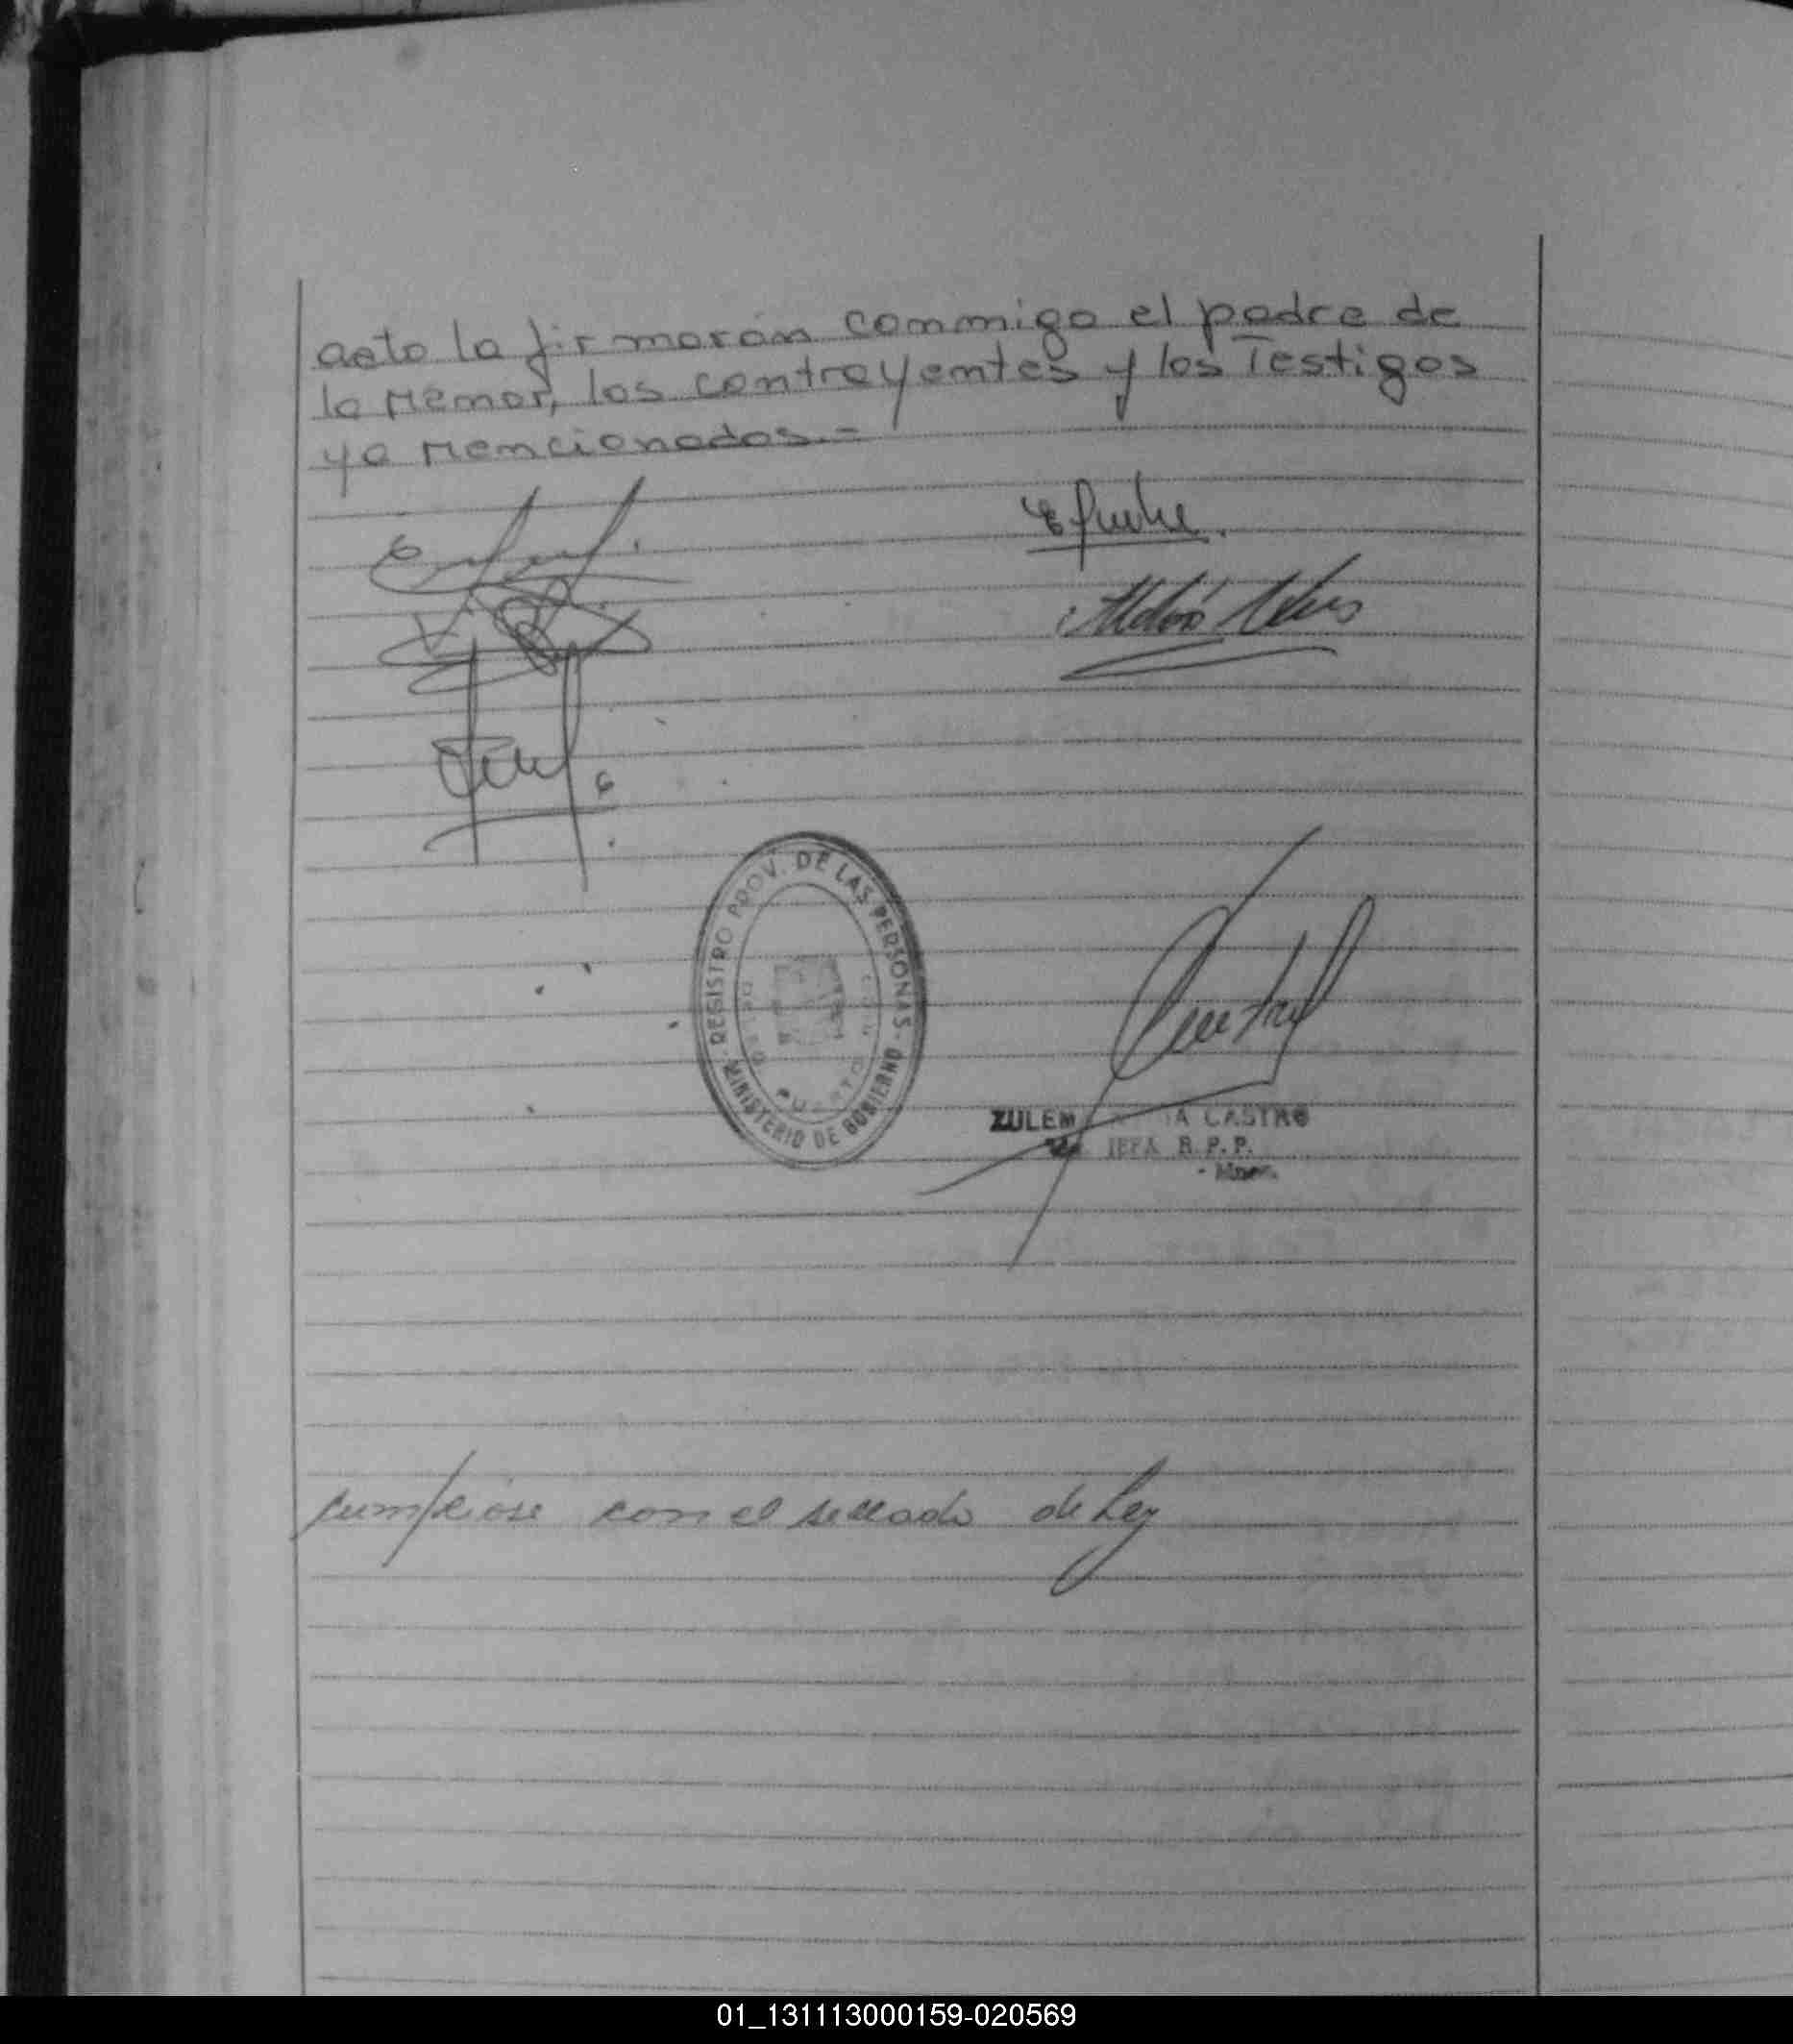 acto la firmarán conmigo el padre de
la Menor, los contrayentes y los Testigos
ya Mencionados.-
REGISTRO PROV. DE LAS PERSONAS
MINISTERIO DE GOBIERNO
ZULEM A CASTRO
JEFA B.P.P.
cumpliose con el sellado de Ley
01_131113000159-020569